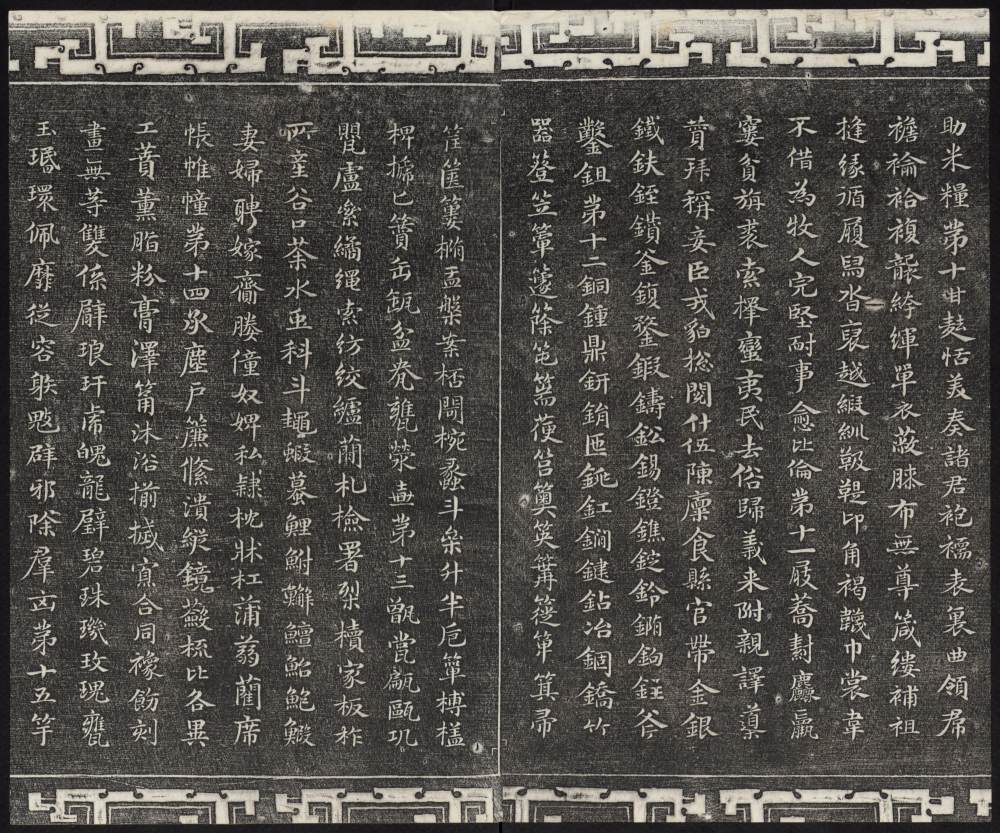 助米糧第十甘麩恬美奏諸君袍襦表裏曲領帬
襜褕袷複褶絝褌單衣蔽膝布無尊箴縷補袒
縫緣循履舄沓裒越緞紃靸鞮卬角褐韤巾裳韋
不借為牧人完堅耐事愈比倫第十一屐蕎麤羸
窶貧旃裘索擇蠻夷民去俗歸義来附親譯導
贊拜稱妾臣戎貊捴閱什伍陳廩食縣官帶金銀
鐵鈇銍鑽釜鍑鍪鍜鑄鈆錫鐙鐎錠鈴鉤斧
鑿鉏第十二銅鍾鼎鈃鋗匜銚釭鐧鍵鉆冶錮鐈竹
器簦笠簟籧篨笔篅筥筴篝簁箄箕帚
筐篋簍橢盂槃案桮閜椀蠡斗參升半卮簞榑榼
椑榹匕簀缶缻盆瓮甕滎壺第十三甑甞甂甌瓨
甖盧絫繘繩索紡絞纑蕳札檢署槧櫝家板柞
所產谷口荼水虫科斗蠅蝦蟇鯉鮒鱣鮐鮑鰕
妻婦聘嫁齎媵僮奴婢私隸枕牀杠蒲蒻藺席
帳帷幢第十四承塵戶簾絛潰縱鏡蘞梳比各異
工蕡薰脂粉膏澤筩沐浴揃搣寡合同襐飭刻
畫無等雙係臂琅玕虎魄龍璧碧珠璣玫瑰甕
玉玽環佩靡從容躲魃辟邪除羣凶第十五竽